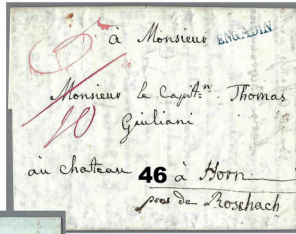 à Monsieur ENGADIN
Monsieur le Capitn. Thomas
20 Giuliani
au chateau 46 à Horn
pres de Roschach